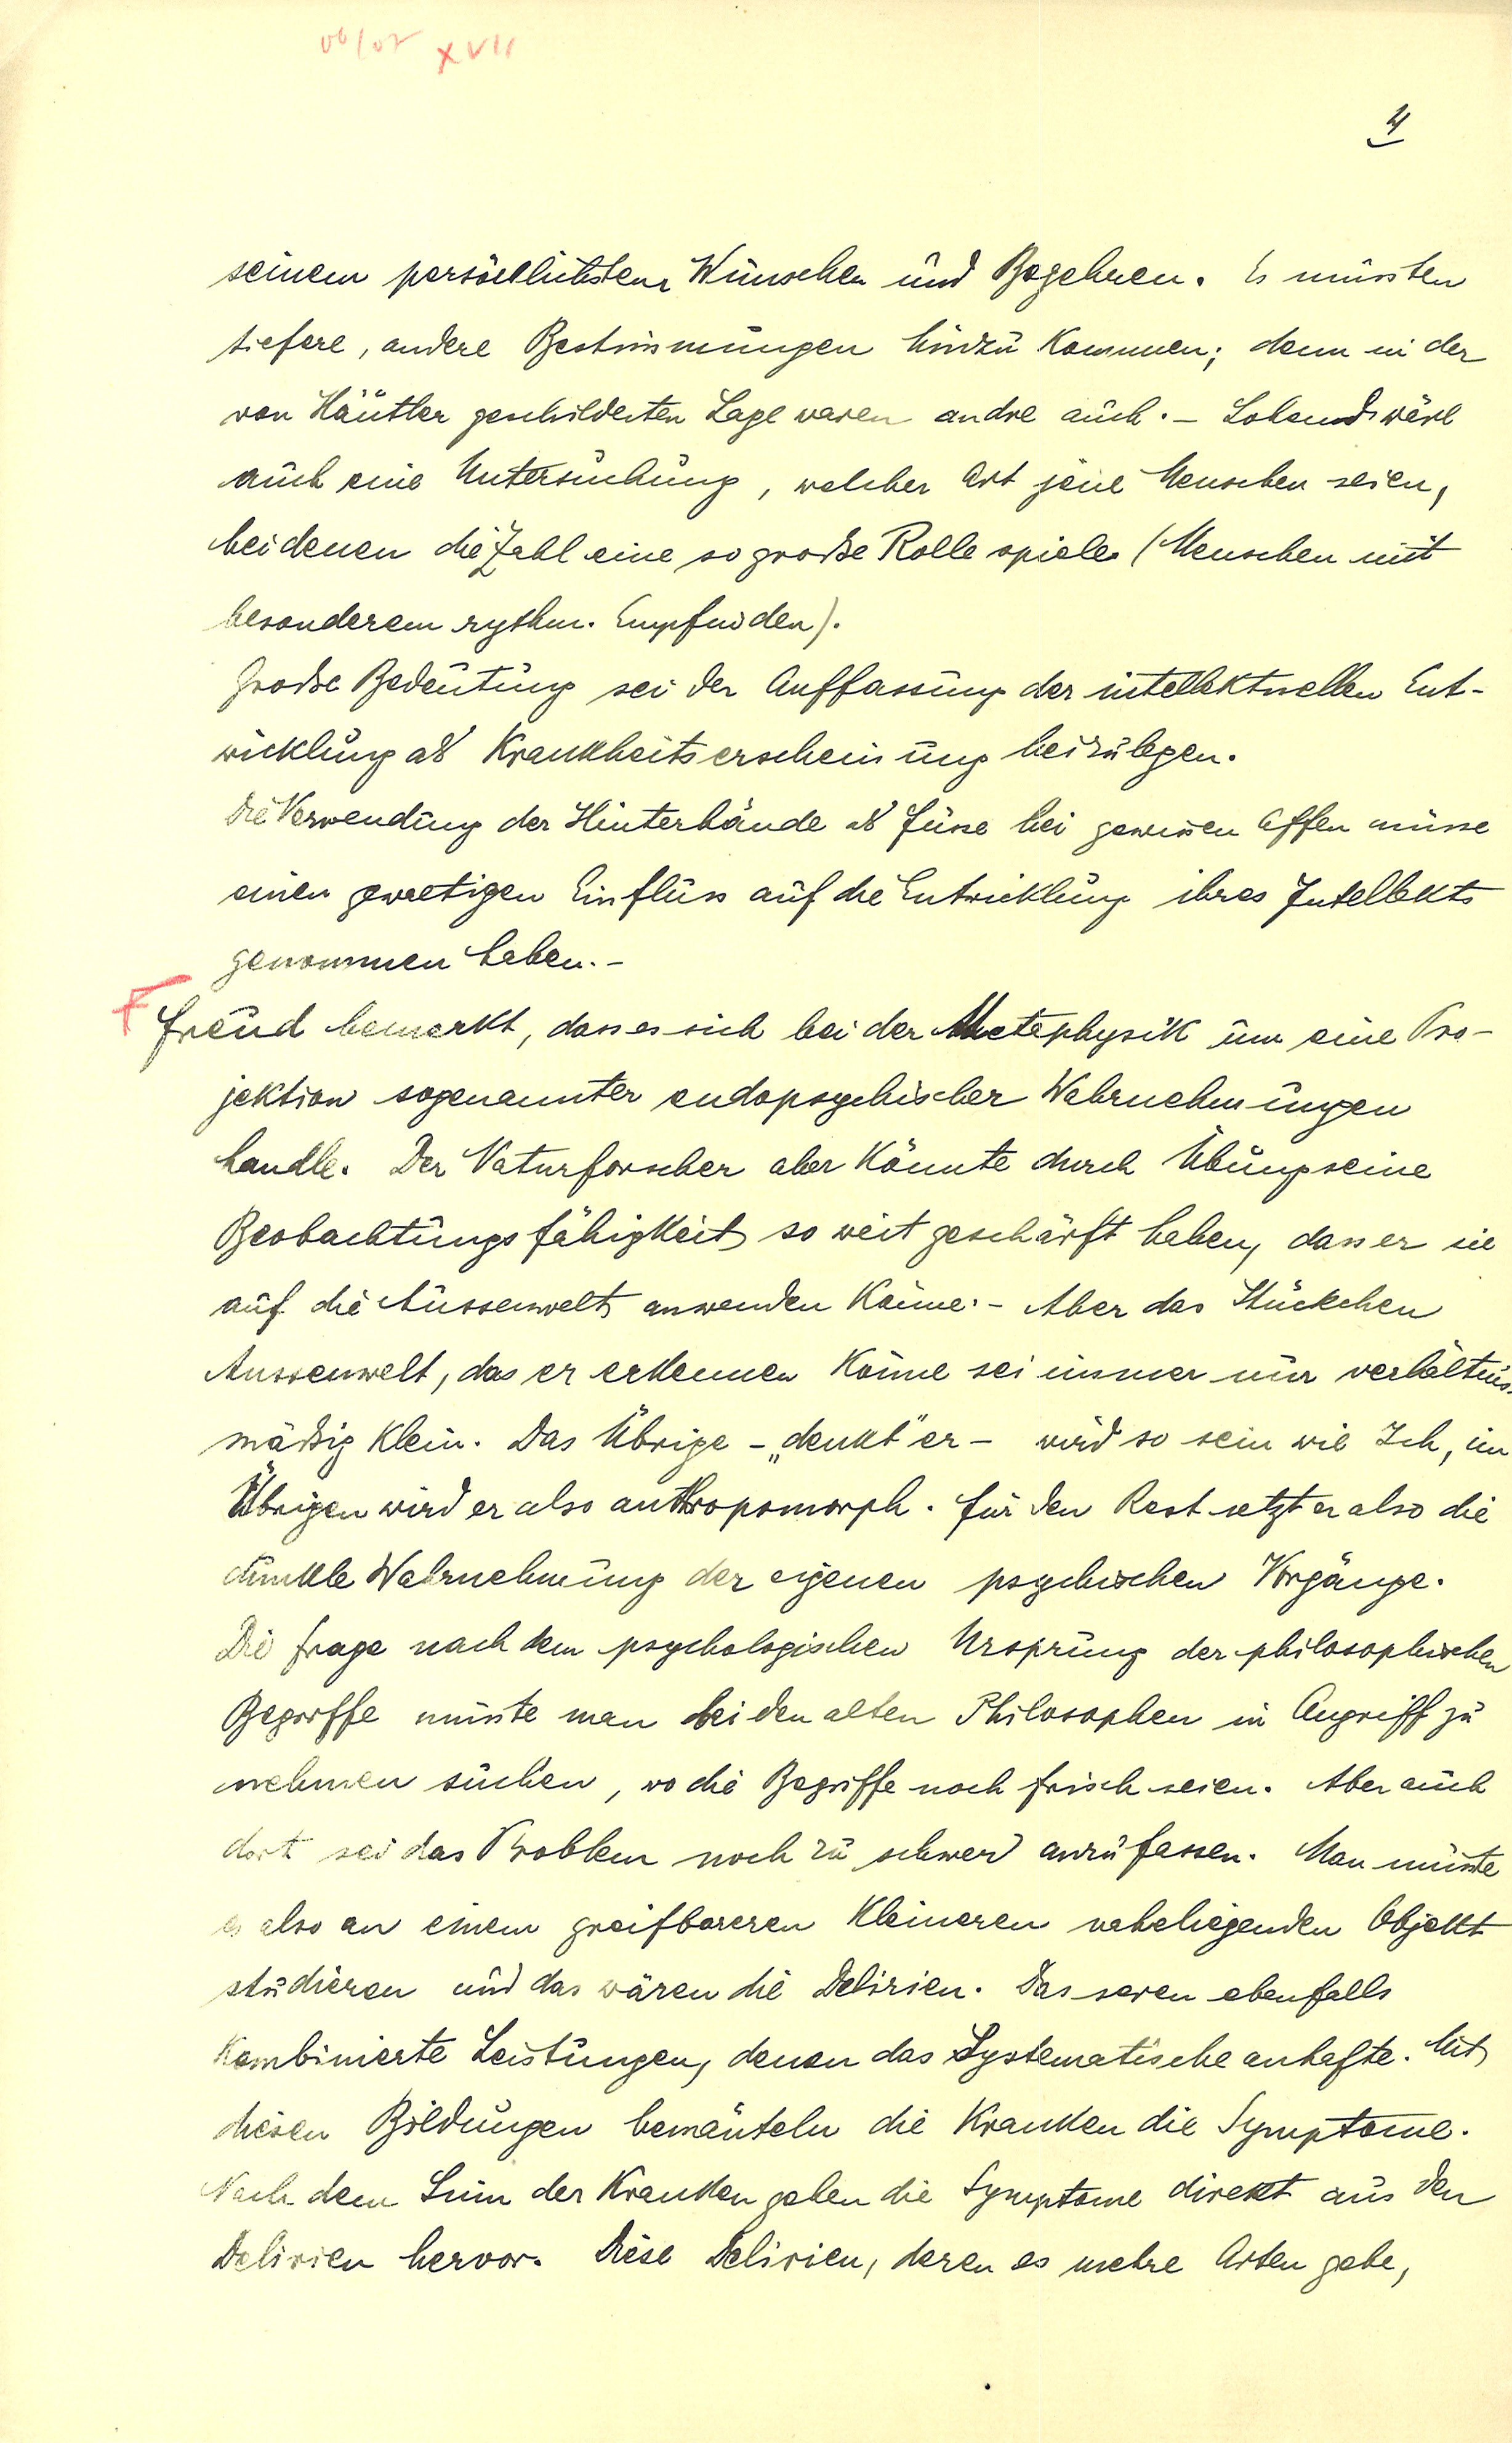 06/07 XVII
4
seinem persönlichsten Wünschen und Begehren. Es müssten
tiefere, andere Bestimmungen hinzu kommen; denn in der
von Häutler geschilderten Lage waren andre auch. - Lohend wäre
auch eine Untersuchung, welcher Art jene Menschen seien,
bei denen die Zahl eine so große Rolle spiele (Menschen mit
besonderem rythm. Empfinden).
Große Bedeutung sei der Auffassung der intellektuellen Ent-
wicklung als Krankheitserscheinung beizulegen.
Die Verwendung der Hinterhände als Füsse bei gewissen Affen müsse
einen gewaltigen Einfluss auf die Entwicklung ihres Intellekts
genommen haben. -
F Freud bemerkt, dass es sich bei der Metaphysik um eine Pro-
jektion sogenannter endopsychischer Wahrnehmungen
handle. Der Naturforscher aber könnte durch Übung seine
Beobachtungsfähigkeit so weit geschärft haben, dass er sie
auf die Aussenwelt anwenden könne. - Aber das Stückchen
Aussenwelt, das er erkennen könne sei immer nur verhältnis-
mäßig klein. Das Übrige - „denkt" er - wird so sein wie Ich, im
Übrigen wird er also anthropomorph. Für den Rest setzt er also die
dunkle Wahrnehmung der eigenen psychischen Vorgänge.
Die Frage nach dem psychologischen Ursprung der philosophischen
Begriffe müsste man bei den alten Philosophen in Angriff zu
nehmen suchen, wo die Begriffe noch frisch seien. Aber auch
dort sei das Problem noch zu schwer anzufassen. Man müsste
es also an einem greifbareren kleineren naheliegenden Objekt
studieren und das wären die Delirien. Das seien ebenfalls
kombinierte Leistungen, denen das Systematische anhafte. Mit
diesen Bildungen bemänteln die Kranken die Symptome.
Nach dem Sinn der Kranken gehen die Symptome direkt aus den
Delirien hervor. Diese Delirien, deren es mehre Arten gebe,